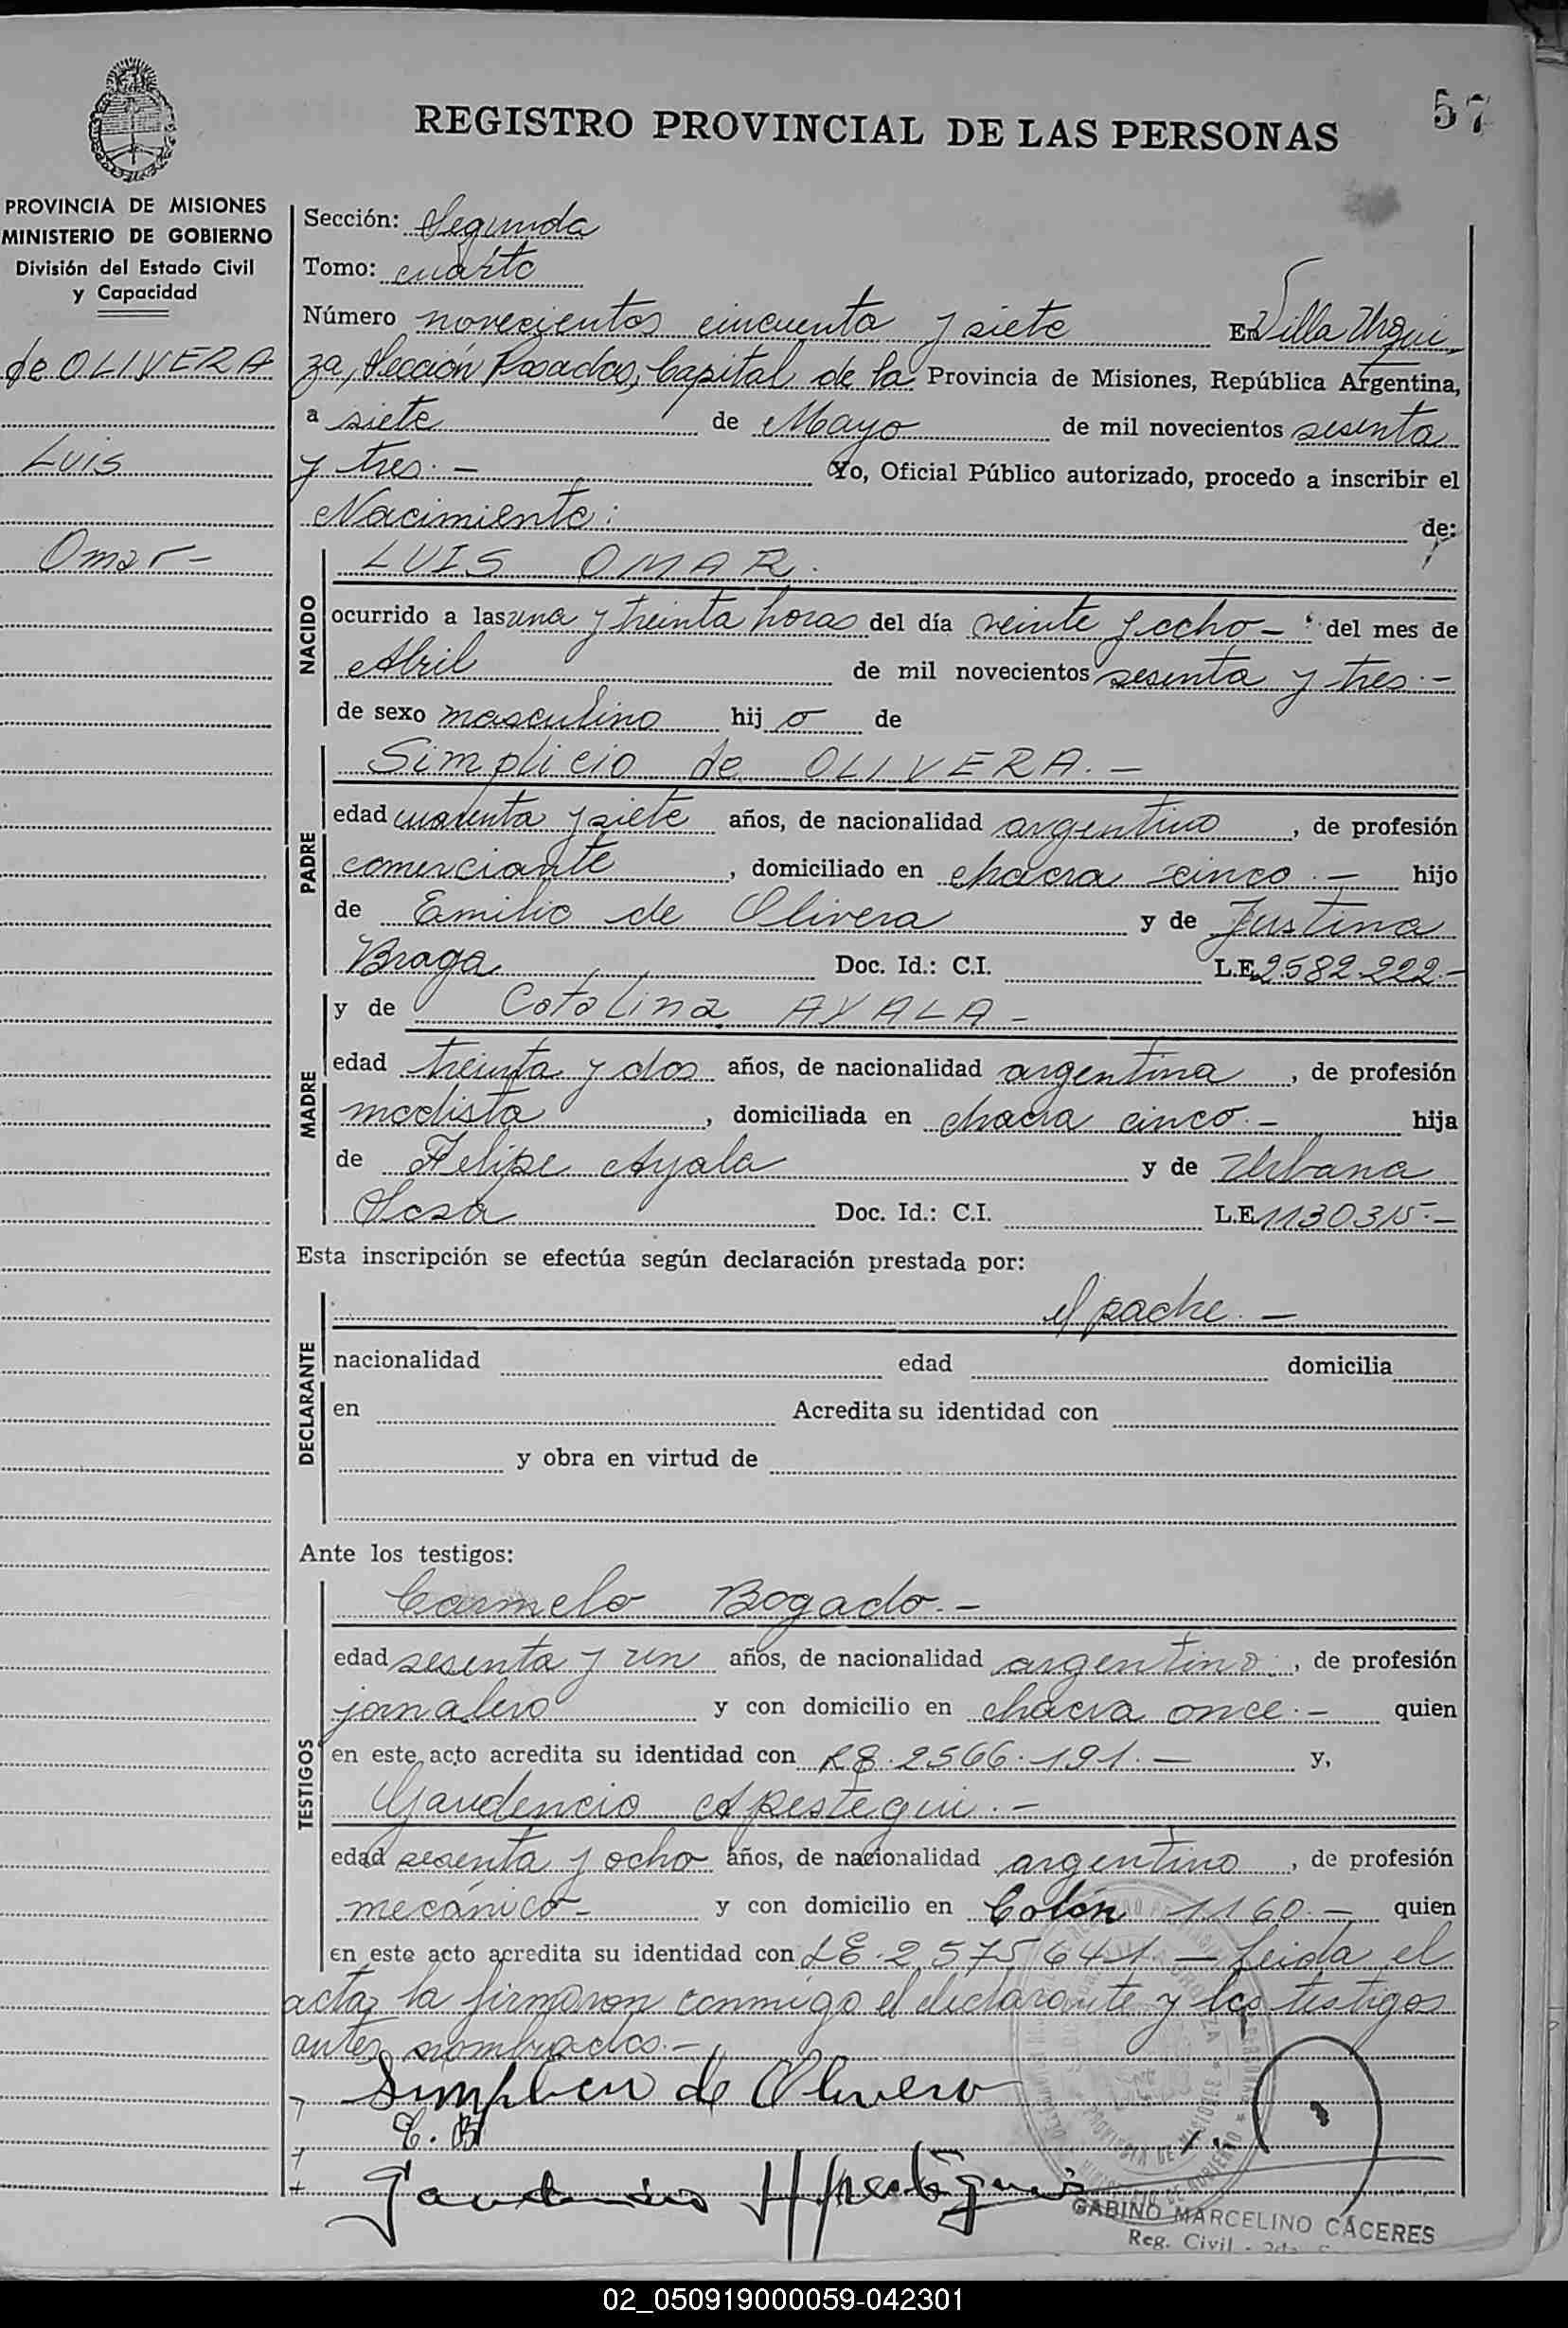 57
REGISTRO PROVINCIAL DE LAS PERSONAS
PROVINCIA DE MISIONES
MINISTERIO DE GOBIERNO
División del Estado Civil
y Capacidad
de OLIVERA
Luis
Omar -
Sección: Segunda
Tomo: cuarto
Número novecientos cincuenta y siete En Villa Urqui
za, Sección Posadas, Capital de la Provincia de Misiones, República Argentina,
a siete de Mayo de mil novecientos sesenta
y tres.- Yo, Oficial Público autorizado, procedo a inscribir el
Nacimiento: de:
NACIDO
LUIS OMAR.
ocurrido a las una y treinta horas del día veinte y ocho - del mes de
Abril de mil novecientos sesenta y tres.-
de sexo masculino hij o de
PADRE
Simplicio de OLIVERA.-
edad cuarenta y siete años, de nacionalidad argentino, de profesión
comerciante, domiciliado en chacra cinco.- hijo
de Emilio de Olivera y de Justina
Braga Doc. Id.: C.I. L.E. 2582.222.-
MADRE
y de Catalina AYALA -
edad treinta y dos años, de nacionalidad argentina, de profesión
modista, domiciliada en chacra cinco.- hija
de Felipe Ayala y de Urbana
Sosa Doc. Id.: C.I. L.E. 1130315.-
Esta inscripción se efectúa según declaración prestada por:
DECLARANTE
el padre.-
nacionalidad edad domicilia
en Acredita su identidad con
y obra en virtud de
Ante los testigos:
TESTIGOS
Carmelo Bogado.-
edad sesenta y un años, de nacionalidad argentino, de profesión
jornalero y con domicilio en chacra once.- quien
en este acto acredita su identidad con LE.2566.191.- y,
Gaudencio Apestegui.-
edad sesenta y ocho años, de nacionalidad argentino, de profesión
mecánico- y con domicilio en Colón 1160.- quien
en este acto acredita su identidad con LE.2.575641 - Leida el
acta, la firmaron conmigo el declarante y los testigos
antes nombrados.-
Simplicio de Olivera
C. B
Gaudencio Apestegui
GABINO MARCELINO CÁCERES
Reg. Civil - 2da.
02_050919000059-042301